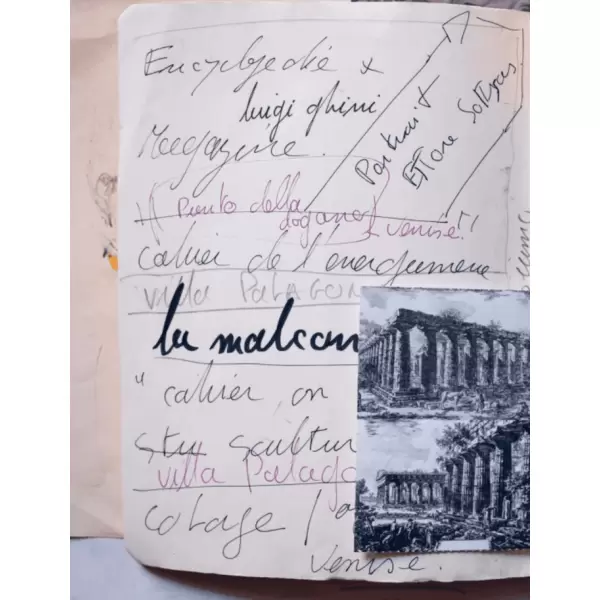 Encyclopedie x
luigi ghini
Magazine.
Portrait
Ettore Sottsas
Punto della
dogane
venise!!
Cahier de l'energumene
Villa PALAGON
la
"cahier on
scultur
villa Palago
Colage /
venise.